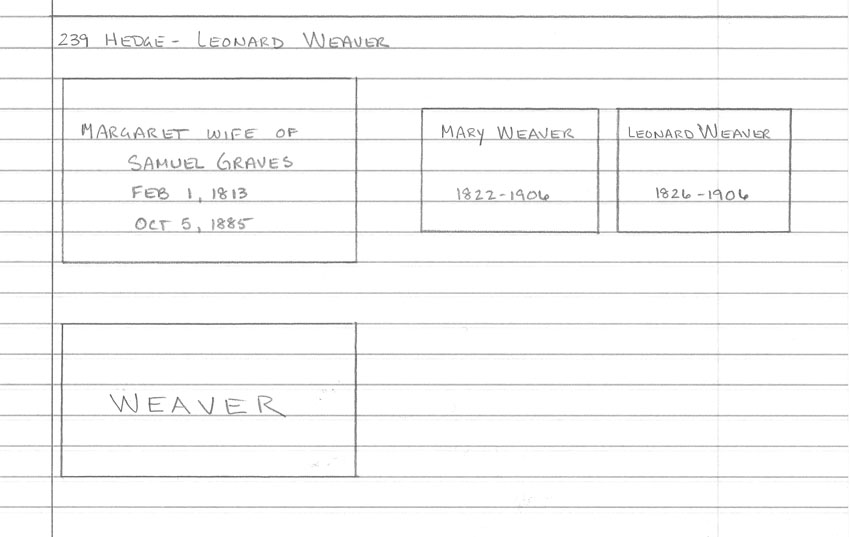 239 HEDGE - LEONARD WEAVER
MARGARET WIFE OF
SAMUEL GRAVES
FEB 1, 1813
OCT 5, 1885
MARY WEAVER
1822-1906
LEONARD WEAVER
1826-1906
WEAVER